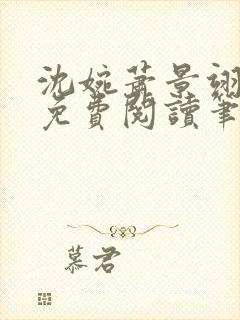 沈婉蕭景翊
免費閱讀筆
慕君